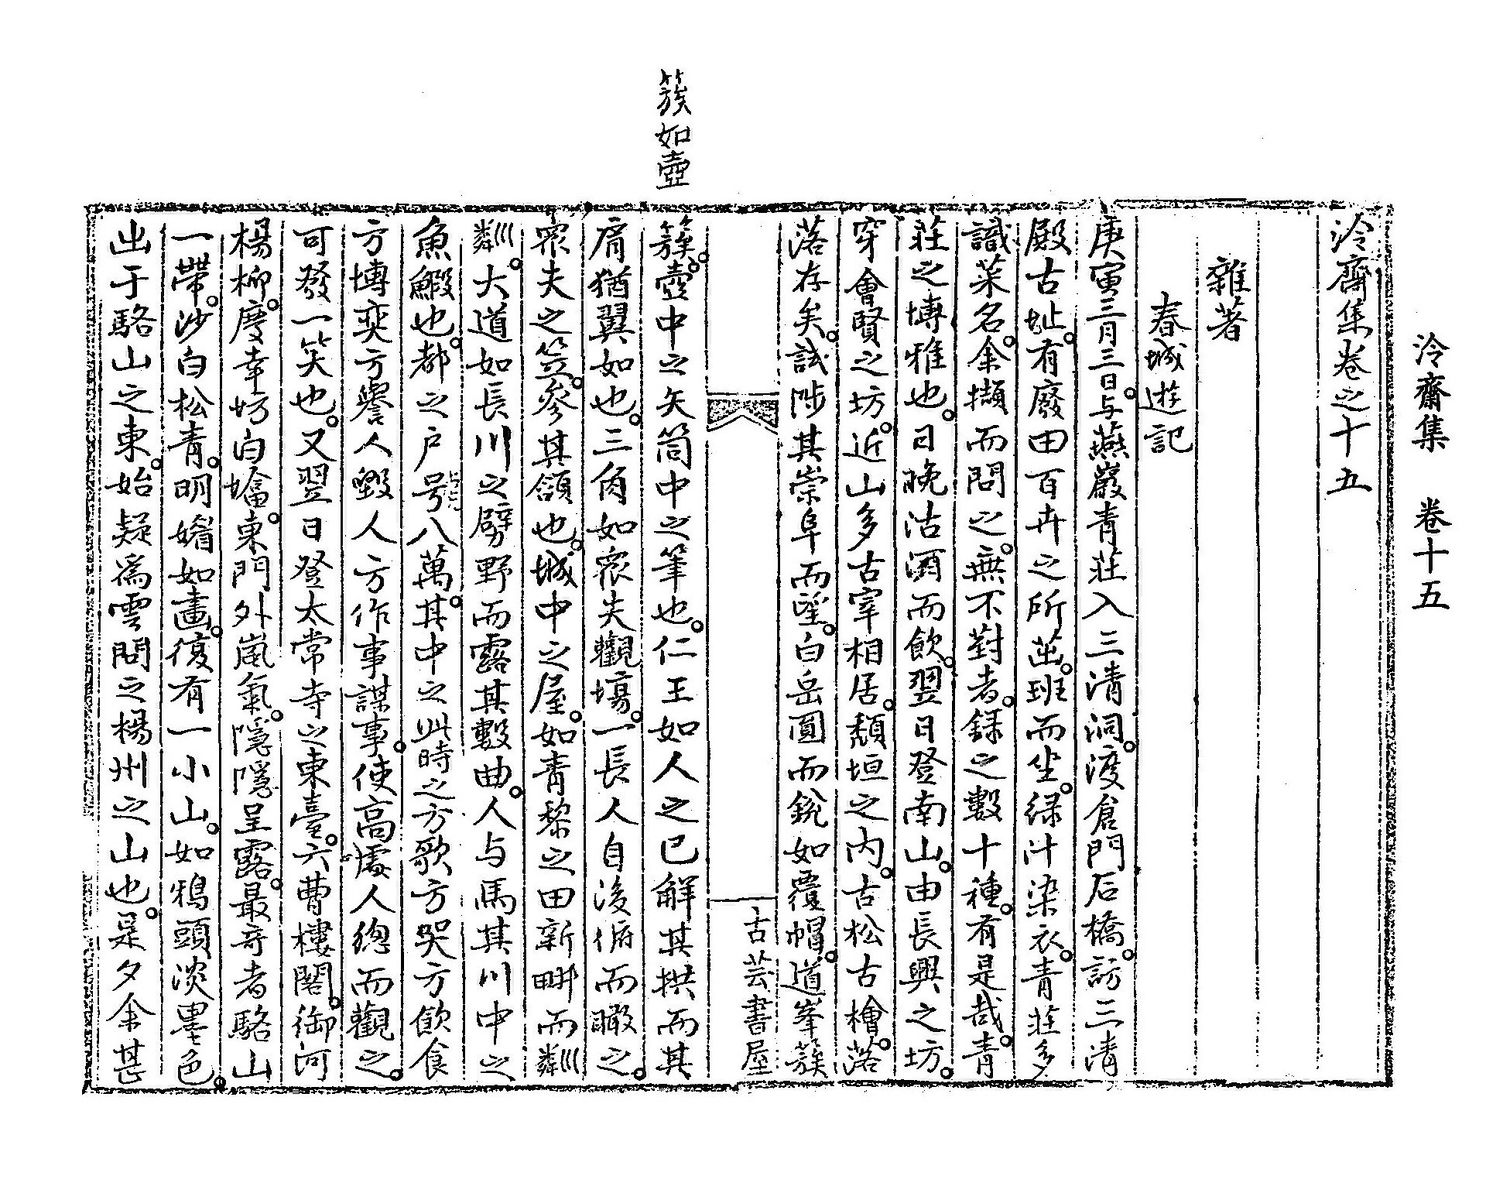 泠齋集 卷十五
泠齋集卷之十五
雜著
春城遊記
庚寅三月三日与燕巖青莊入三清洞渡倉門石橋訪三清
殿古址有廢田百卉之所茁班而坐綠汁染衣青莊多
識菜名余擷而問之無不對者錄之數十種有是哉青
莊之博雅也日晚沽酒而飮翌日登南山由長興之坊
穿會賢之坊近山多古宰相居頹垣之內古松古檜落
落存矣試陟其崇阜而望白岳圓而銳如覆帽道峯簇
古芸書屋
簇如壺
簇壺中之矢筒中之筆也仁王如人之已解其拱而其
肩猶翼如也三角如衆夫觀場一長人自後俯而瞰之
衆夫之笠參其頷也城中之屋如靑黎之田新畊而粼巛
粼巛大道如長川之劈野而露其數曲人与馬其川中之
魚鰕也都之戶号八萬其中之此時之方歌方哭方飮食
方博奕方譽人毁人方作事謀事使高處人緫而觀之
可發一笑也又翌日登太常寺之東臺六曹樓閣御河
楊柳慶幸坊白塔東門外嵐氣隱隱呈露最奇者駱山
一帶沙白松青明媚如畫復有一小山如鴉頭淡墨色
出于駱山之東始疑爲雲問之楊州之山也是夕余甚